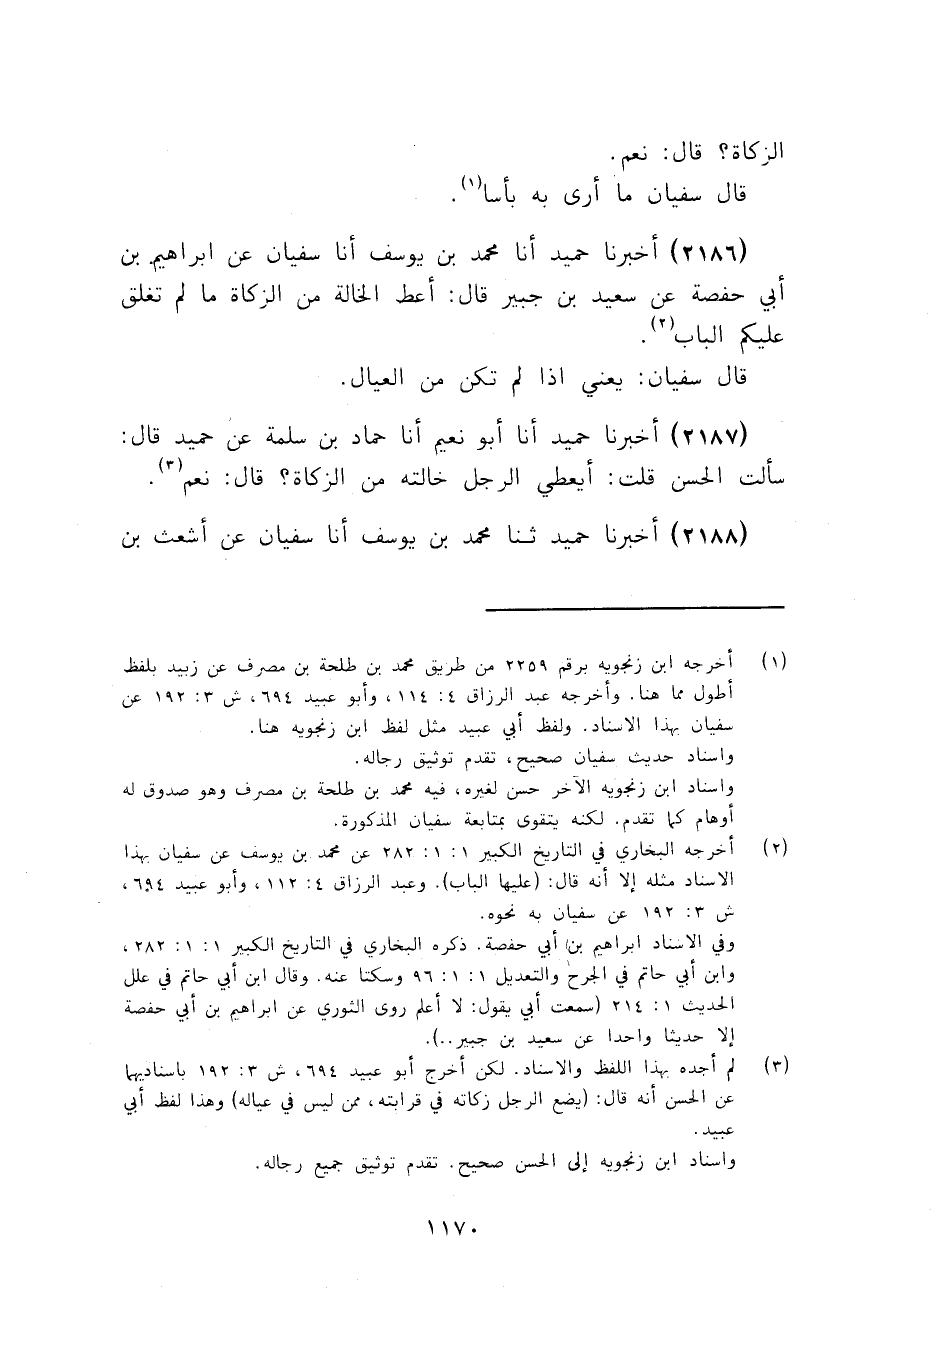 الزكاة؟ قال: نعم.
قال سفيان ما أرى به بأسا(١).
(٢١٨٦) أخبرنا حميد أنا محمد بن يوسف أنا سفيان عن ابراهيم بن
أبي حفصة عن سعيد بن جبير قال: أعط الخالة من الزكاة ما لم تغلق
عليكم الباب(٢).
قال سفيان: يعني اذا لم تكن من العيال.
(٢١٨٧) أخبرنا حميد أنا أبو نعيم أنا حماد بن سلمة عن حميد قال:
سألت الحسن قلت: أيعطي الرجل خالته من الزكاة؟ قال: نعم(٣).
(٢١٨٨) أخبرنا حميد ثنا محمد بن يوسف أنا سفيان عن أشعث بن
(١) أخرجه ابن زنجويه برقم ٢٢٥٩ من طريق محمد بن طلحة بن مصرف عن زبيد بلفظ
أطول مما هنا. وأخرجه عبد الرزاق ٤: ١١٤، وأبو عبيد ٦٩٤، ش ٣: ١٩٢ عن
سفيان بهذا الاسناد. ولفظ أبي عبيد مثل لفظ ابن زنجويه هنا.
واسناد حديث سفيان صحيح، تقدم توثيق رجاله.
واسناد ابن زنجويه الآخر حسن لغيره، فيه محمد بن طلحة بن مصرف وهو صدوق له
أوهام كما تقدم. لكنه يتقوى بمتابعة سفيان المذكورة.
(٢) أخرجه البخاري في التاريخ الكبير ١: ١: ٢٨٢ عن محمد بن يوسف عن سفيان بهذا
الاسناد مثله إلا أنه قال: (عليها الباب). وعبد الرزاق ٤: ١١٢، وأبو عبيد ٦٩٤،
ش ٣: ١٩٢ عن سفيان به نحوه.
وفي الاسناد ابراهيم بن أبي حفصة. ذكره البخاري في التاريخ الكبير ١: ١: ٢٨٢،
وابن أبي حاتم في الجرح والتعديل ١: ١: ٩٦ وسكتا عنه. وقال ابن أبي حاتم في علل
الحديث ١: ٢١٤ (سمعت أبي يقول: لا أعلم روى الثوري عن ابراهيم بن أبي حفصة
إلا حديثا واحدا عن سعيد بن جبير..).
(٣) لم أجده بهذا اللفظ والاسناد. لكن أخرج أبو عبيد ٦٩٤، ش ٣: ١٩٢ باسناديهما
عن الحسن أنه قال: (يضع الرجل زكاته في قرابته، ممن ليس في عياله) وهذا لفظ أبي
عبيد.
واسناد ابن زنجويه إلى الحسن صحيح. تقدم توثيق جميع رجاله.
١١٧٠